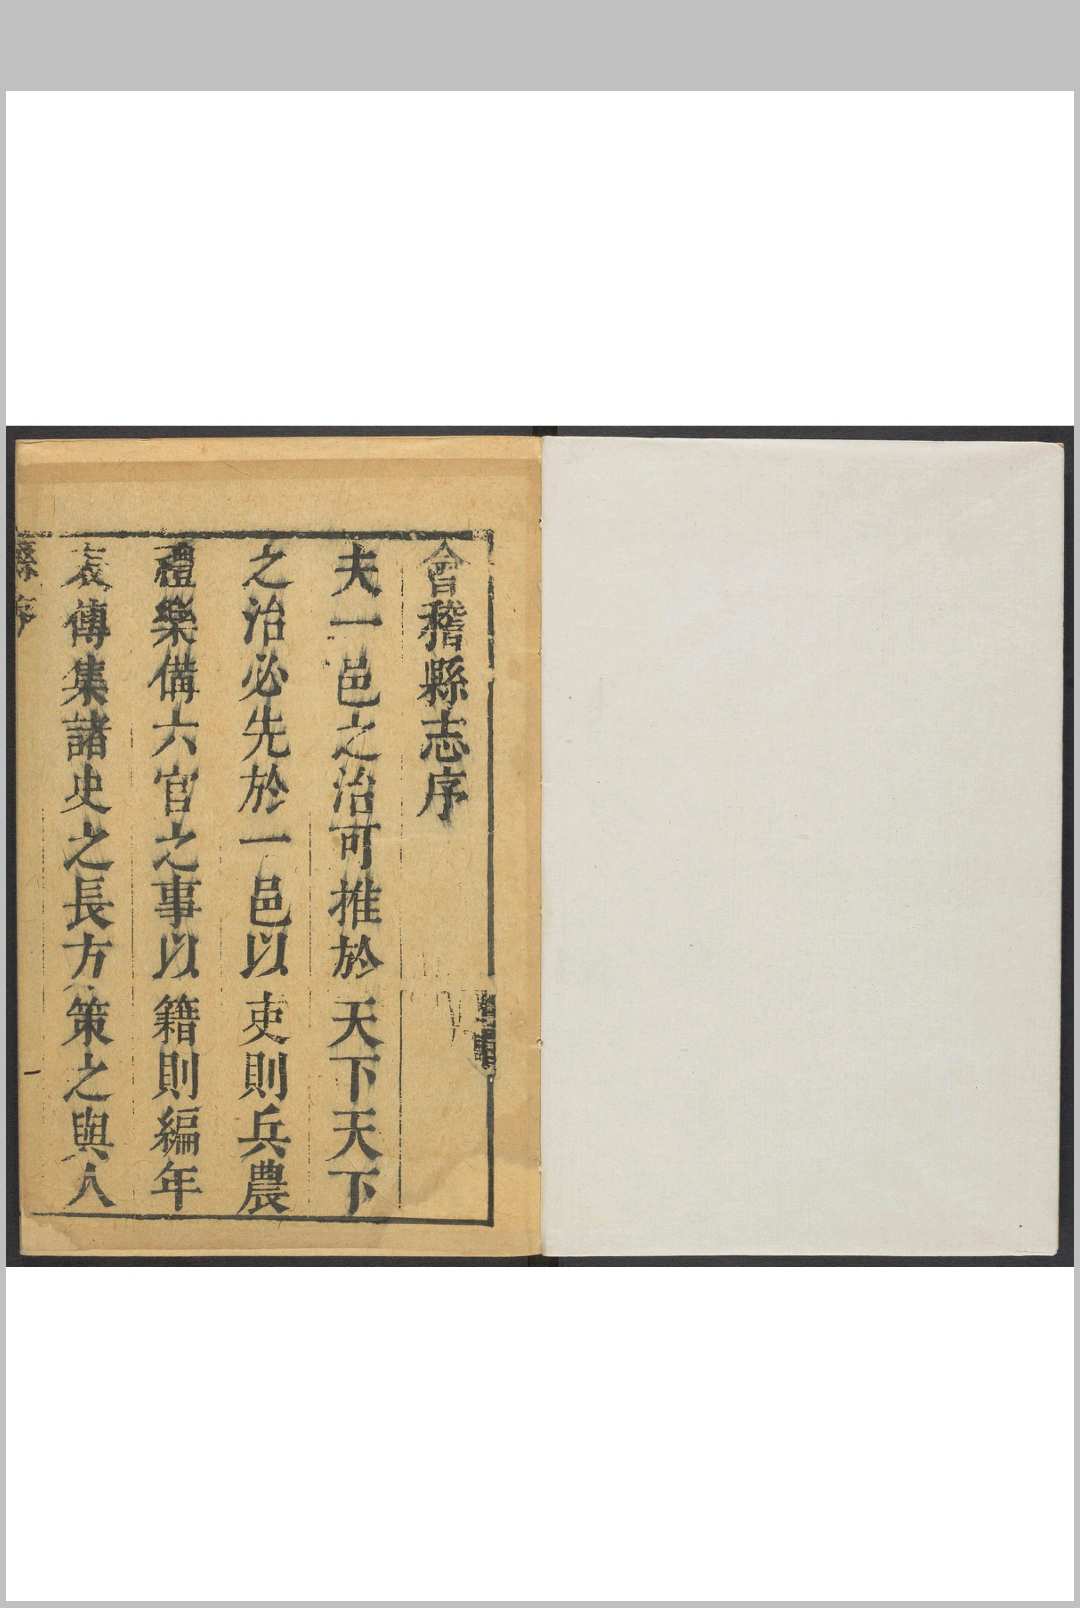 會稽縣志序
夫一邑之治可推於天下天下
之治必先於一邑以吏則兵農
禮樂備六官之事以籍則編年
表傳集諸史之長方策之與人
縣序